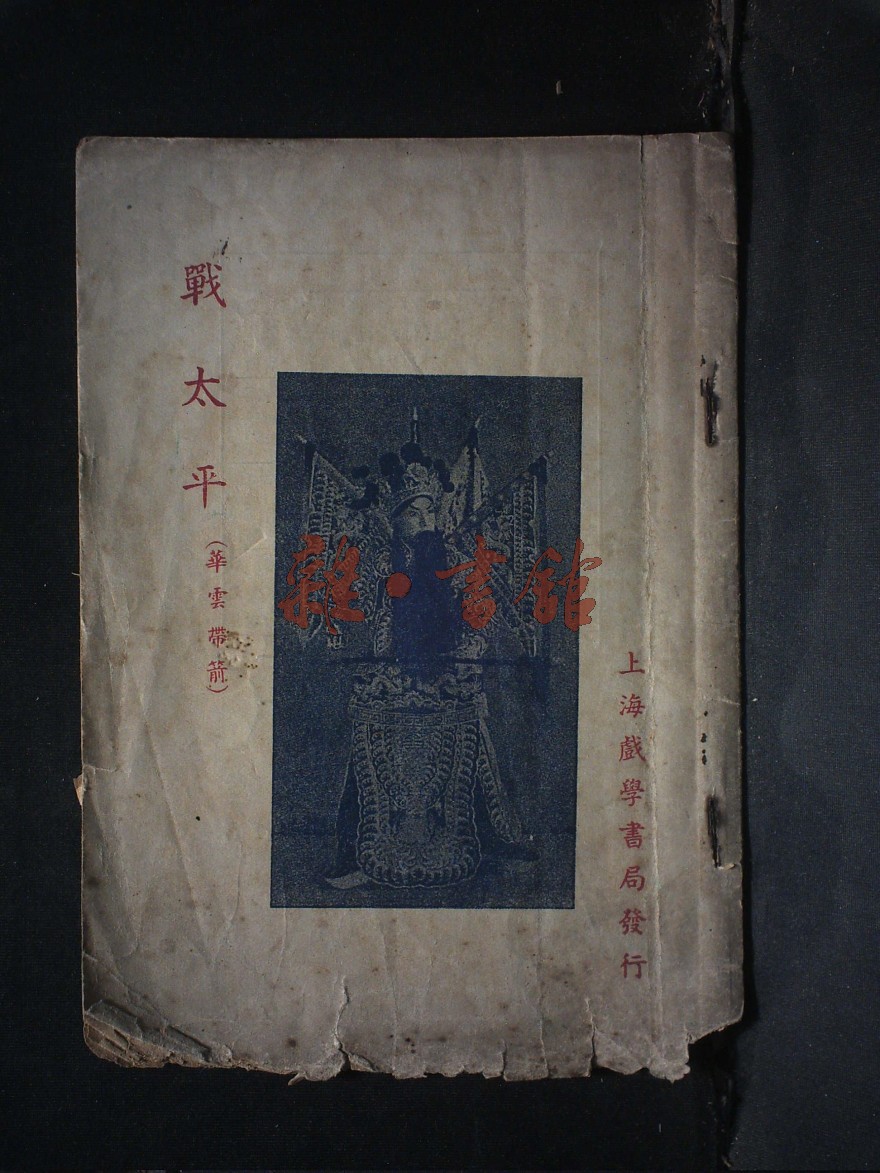 戰太平
(華雲帶箭)
雜·書館
上海戲學書局發行